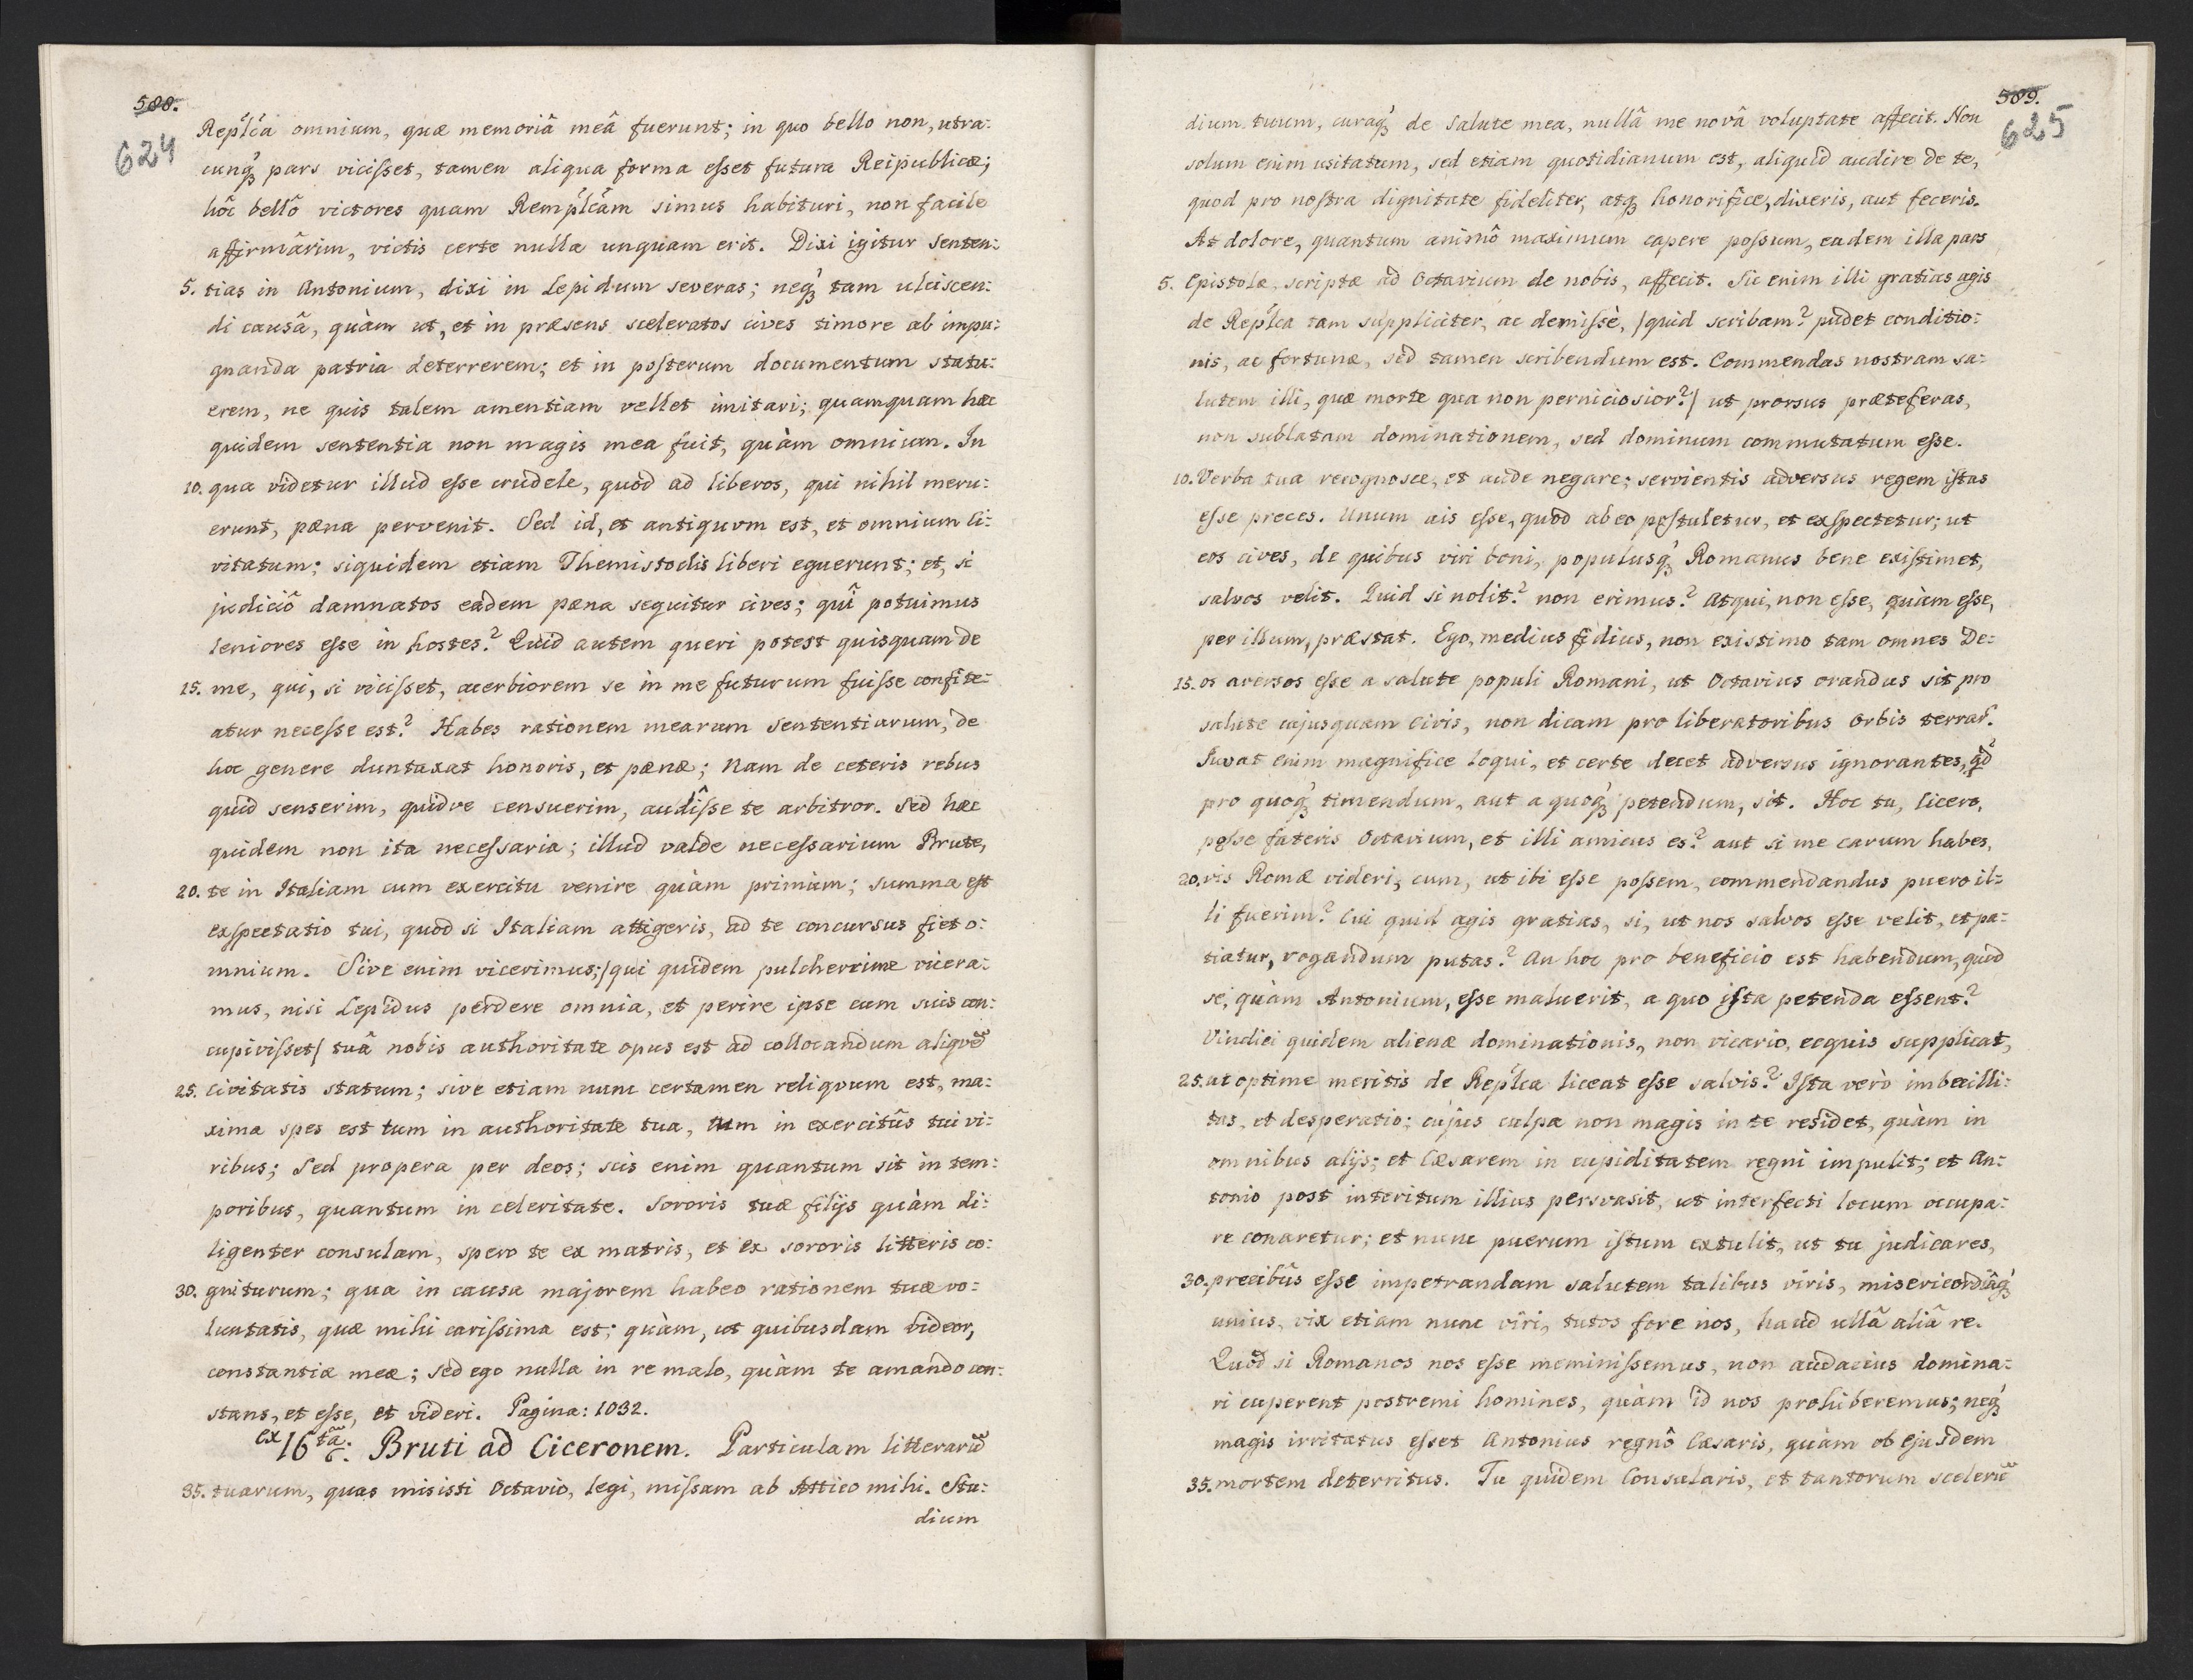 588.
624
Replća omnium, quæ memoriâ meâ fuerunt; in quo bello non, utra:
cunq́ȝ pars vicisset, tamen aliqua forma esset futura Reipublicæ;
hôc bellô victores quam Remplćam simus habituri, non facile
affirmârim, victis certe nulla unquam erit. Dixi igitur senten:
5. tias in Antonium, dixi in Lepidum severas; neq́ȝ tam ulciscen:
di causâ, quàm ut, et in præsens sceleratos cives timore ab impu:
gnanda patria deterrerem; et in posterum documentum statu:
erem, ne quis talem amentiam vellet imitari; quamquam hæc
quidem sententia non magis mea fuit, quàm omnium. In
10. qua videtur illud esse crudele, quod ad liberos, qui nihil meru:
erunt, pæna pervenit. Sed id, et antiquum est, et omnium ci:
vitatum; siquidem etiam Themistoclis liberi eguerunt; et, si
judiciô damnatos eadem pæna sequitur cives; quî potuimus
leniores esse in hostes? Quid autem queri potest quisquam de
15. me, qui, si vicisset, acerbiorem se in me futurum fuisse confite:
atur necesse est? Habes rationem mearum sententiarum, de
hoc genere duntaxat honoris, et pænæ; Nam de ceteris rebus
quid senserim, quidve censuerim, audîsse te arbitror. Sed hæc
quidem non ita necessaria; illud valde necessarium Brute,
20. te in Italiam cum exercitu venire quàm primùm; summa est
exspectatio tui, quod si Italiam attigeris, ad te concursus fiet o:
mnium. Sive enim vicerimus; /qui quidem pulcherrime vicera:
mus, nisi Lepidus perdere omnia, et perire ipse cum suis con:
cupivisset/ tuâ nobis authoritate opus est ad collocandum aliquē
25. civitatis statum; sive etiam nunc certamen reliquum est, ma:
xima spes est tum in authoritate tua, tum in exercitûs tui vi:
ribus; Sed propera per deos; scis enim quantum sit in tem:
poribus, quantum in celeritate. Sororis tuæ filijs quàm di:
ligenter consulam, spero te ex matris, et ex sororis litteris co:
30. gniturum; qua in causa majorem habeo rationem tuæ vo:
luntatis, quæ mihi carissima est; quàm, ut quibusdam videor,
constantiæ meæ; sed ego nulla in re malo, quàm te amando con:
stans, et esse, et videri. Pagina: 1032.
ex 16tâ. C. Bruti ad Ciceronem. Particulam litterarū
35. tuarum, quas misisti Octavio, legi, missam ab Attico mihi. Stu:
dium
589.
625
dium tuum, curaq́ȝ de salute mea, nullâ me novâ voluptate affecit. Non
solum enim usitatum, sed etiam quotidianum est, aliquid audire de te,
quod pro nostra dignitate fideliter, atqȝ honorifice, dixeris, aut feceris.
At dolore, quantum animô maximum capere possum, eadem illa pars
5. Epistolæ, scriptæ ad Octavium de nobis, affecit. Sic enim illi gratias agis
de Replća tam suppliciter, ac demissè, /quid scribam? pudet conditio:
nis, ac fortunæ, sed tamen scribendum est. Commendas nostram sa:
lutem illi, quæ morte qua non perniciosior?/ ut prorsus præ te feras,
non sublatam dominationem, sed dominum commutatum esse.
10. Verba tua recognosce, et aude negare; servientis adversus regem istas
esse preces. Unum ais esse, quod ab eo postuletur, et exspectetur; ut
eos cives, de quibus viri boni, populusq́ȝ Romanus bene existimet,
salvos velit. Quid si nolit? non erimus? Atqui, non esse, quàm esse,
per illum, præstat. Ego, medius fidius, non existimo tam omnes De:
15. os aversos esse a salute populi Romani, ut Octavius orandus sit pro
salute cujusquam civis, non dicam pro liberatoribus orbis terrar̄.
Juvat enim magnifice loqui, et certe decet adversus ignorantes, qd
pro quoq́ȝ timendum, aut a quoq́ȝ petendum, sit. Hoc tu, Cicero,
posse fateris Octavium, et illi amicus es? aut si me carum habes,
20. vis Romæ videri, cum, ut ibi esse possem, commendandus puero il:
li fuerim? Cui quid agis gratias, si, ut nos salvos esse velit, et pa:
tiatur, rogandum putas? An hoc pro beneficio est habendum, quod
se, quàm Antonium, esse maluerit, a quo ista petenda essent?
Vindici quidem alienæ dominationis, non vicario, ecquis supplicat,
25. ut optime meritis de Replća liceat esse salvis? Ista verò imbecilli:
tas, et desperatio; cujus culpa non magis in te residet, quàm in
omnibus alijs; et Cæsarem in cupiditatem regni impulit; et An:
tonio post interitum illius persvasit, ut interfecti locum occupa:
re conaretur; et nunc puerum istum extulit, ut tu judicares,
30. precibûs esse impetrandam salutem talibus viris, misericordiâq́ȝ
unius, vix etiam nunc viri, tutos fore nos, haud ullâ aliâ re.
Quod si Romanos nos esse meminissemus, non audacius domina:
ri cuperent postremi homines, quàm id nos prohiberemus; neq́ȝ
magis irritatus esset Antonius regnô Cæsaris, quàm ob ejusdem
35. mortem deterritus. Tu quidem Consularis, et tantorum scelerū